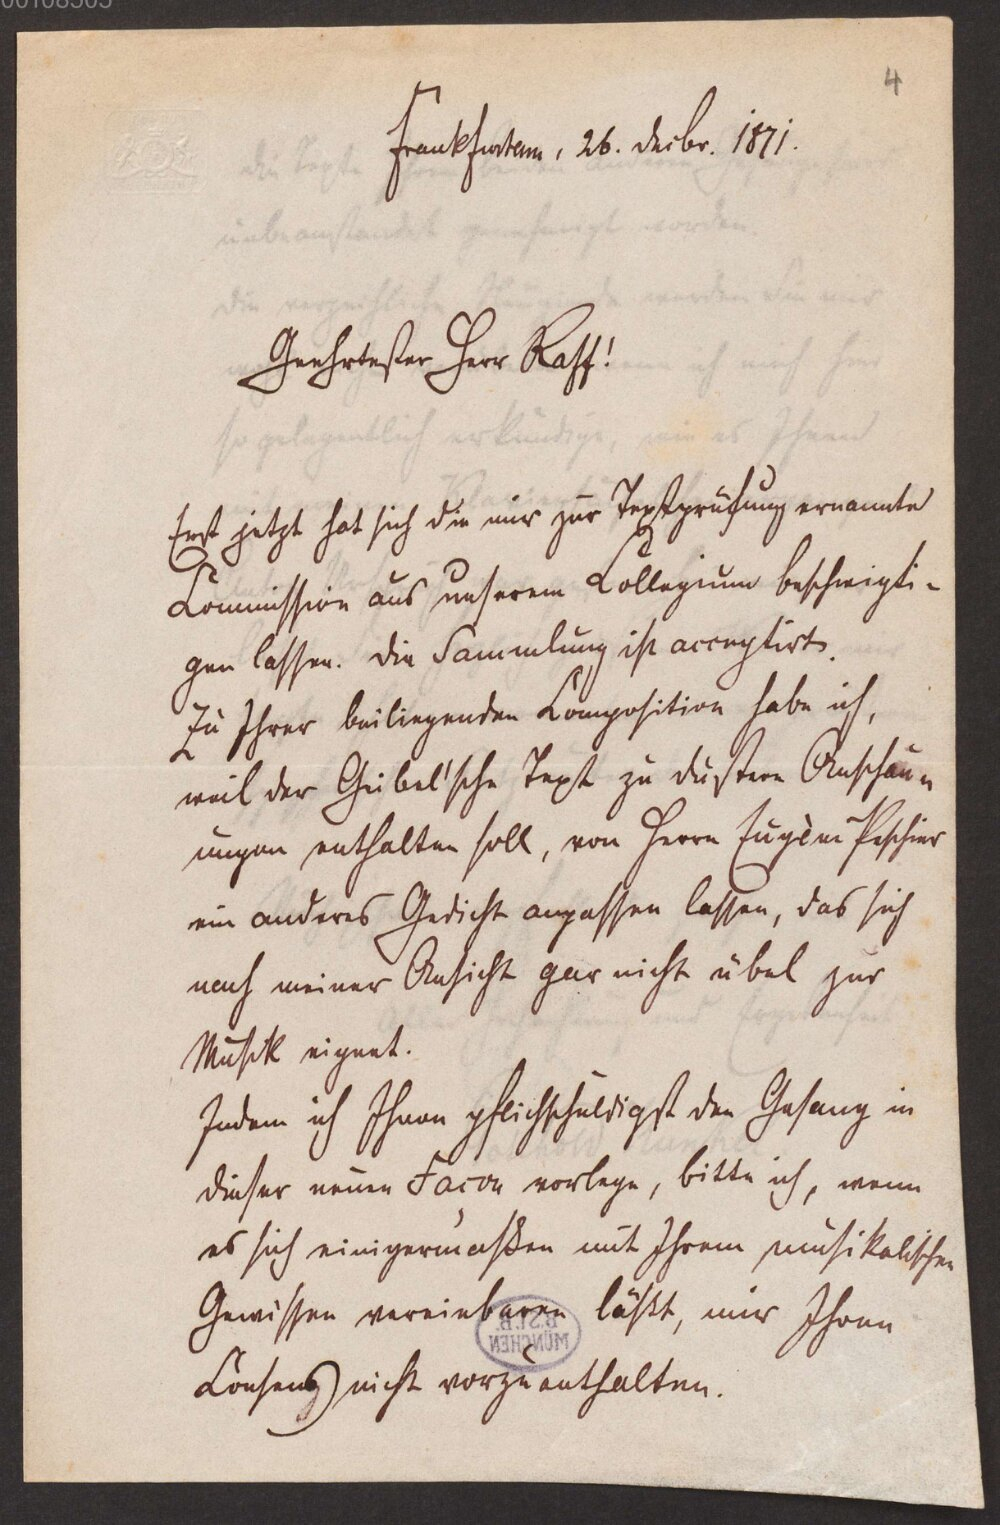 4
Frankfurtam, 26. Decbr. 1871.
Geehrtester Herr Raff!
Erst jetzt hat sich die mir zur Textprüfung ernannte
Commission aus unserem Collegium beschwigti-
gen lassen. Die Sammlung ist acceptirt.
Zu Ihrer beiliegenden Composition habe ich,
weil der Geibel'sche Text zu düstere Anschau-
ungen enthalten soll, von Herrn Eugène Peschier
ein anderes Gedicht anpassen lassen, das sich
nach meiner Ansicht gar nicht übel zur
Musik eignet.
Indem ich Ihnen pflichschuldigst den Gesang in
dieser neuen Façon vorlege, bitte ich, wenn
es sich einigermaßen mit Ihrem musikalischen
Gewissen vereinbaren läßt, mir Ihren
Consens nicht vorzuenthalten.
B.St.B.
MÜNCHEN